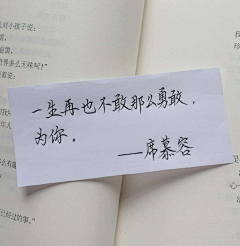 一生再也不敢那么勇敢，
为你。
——席慕容